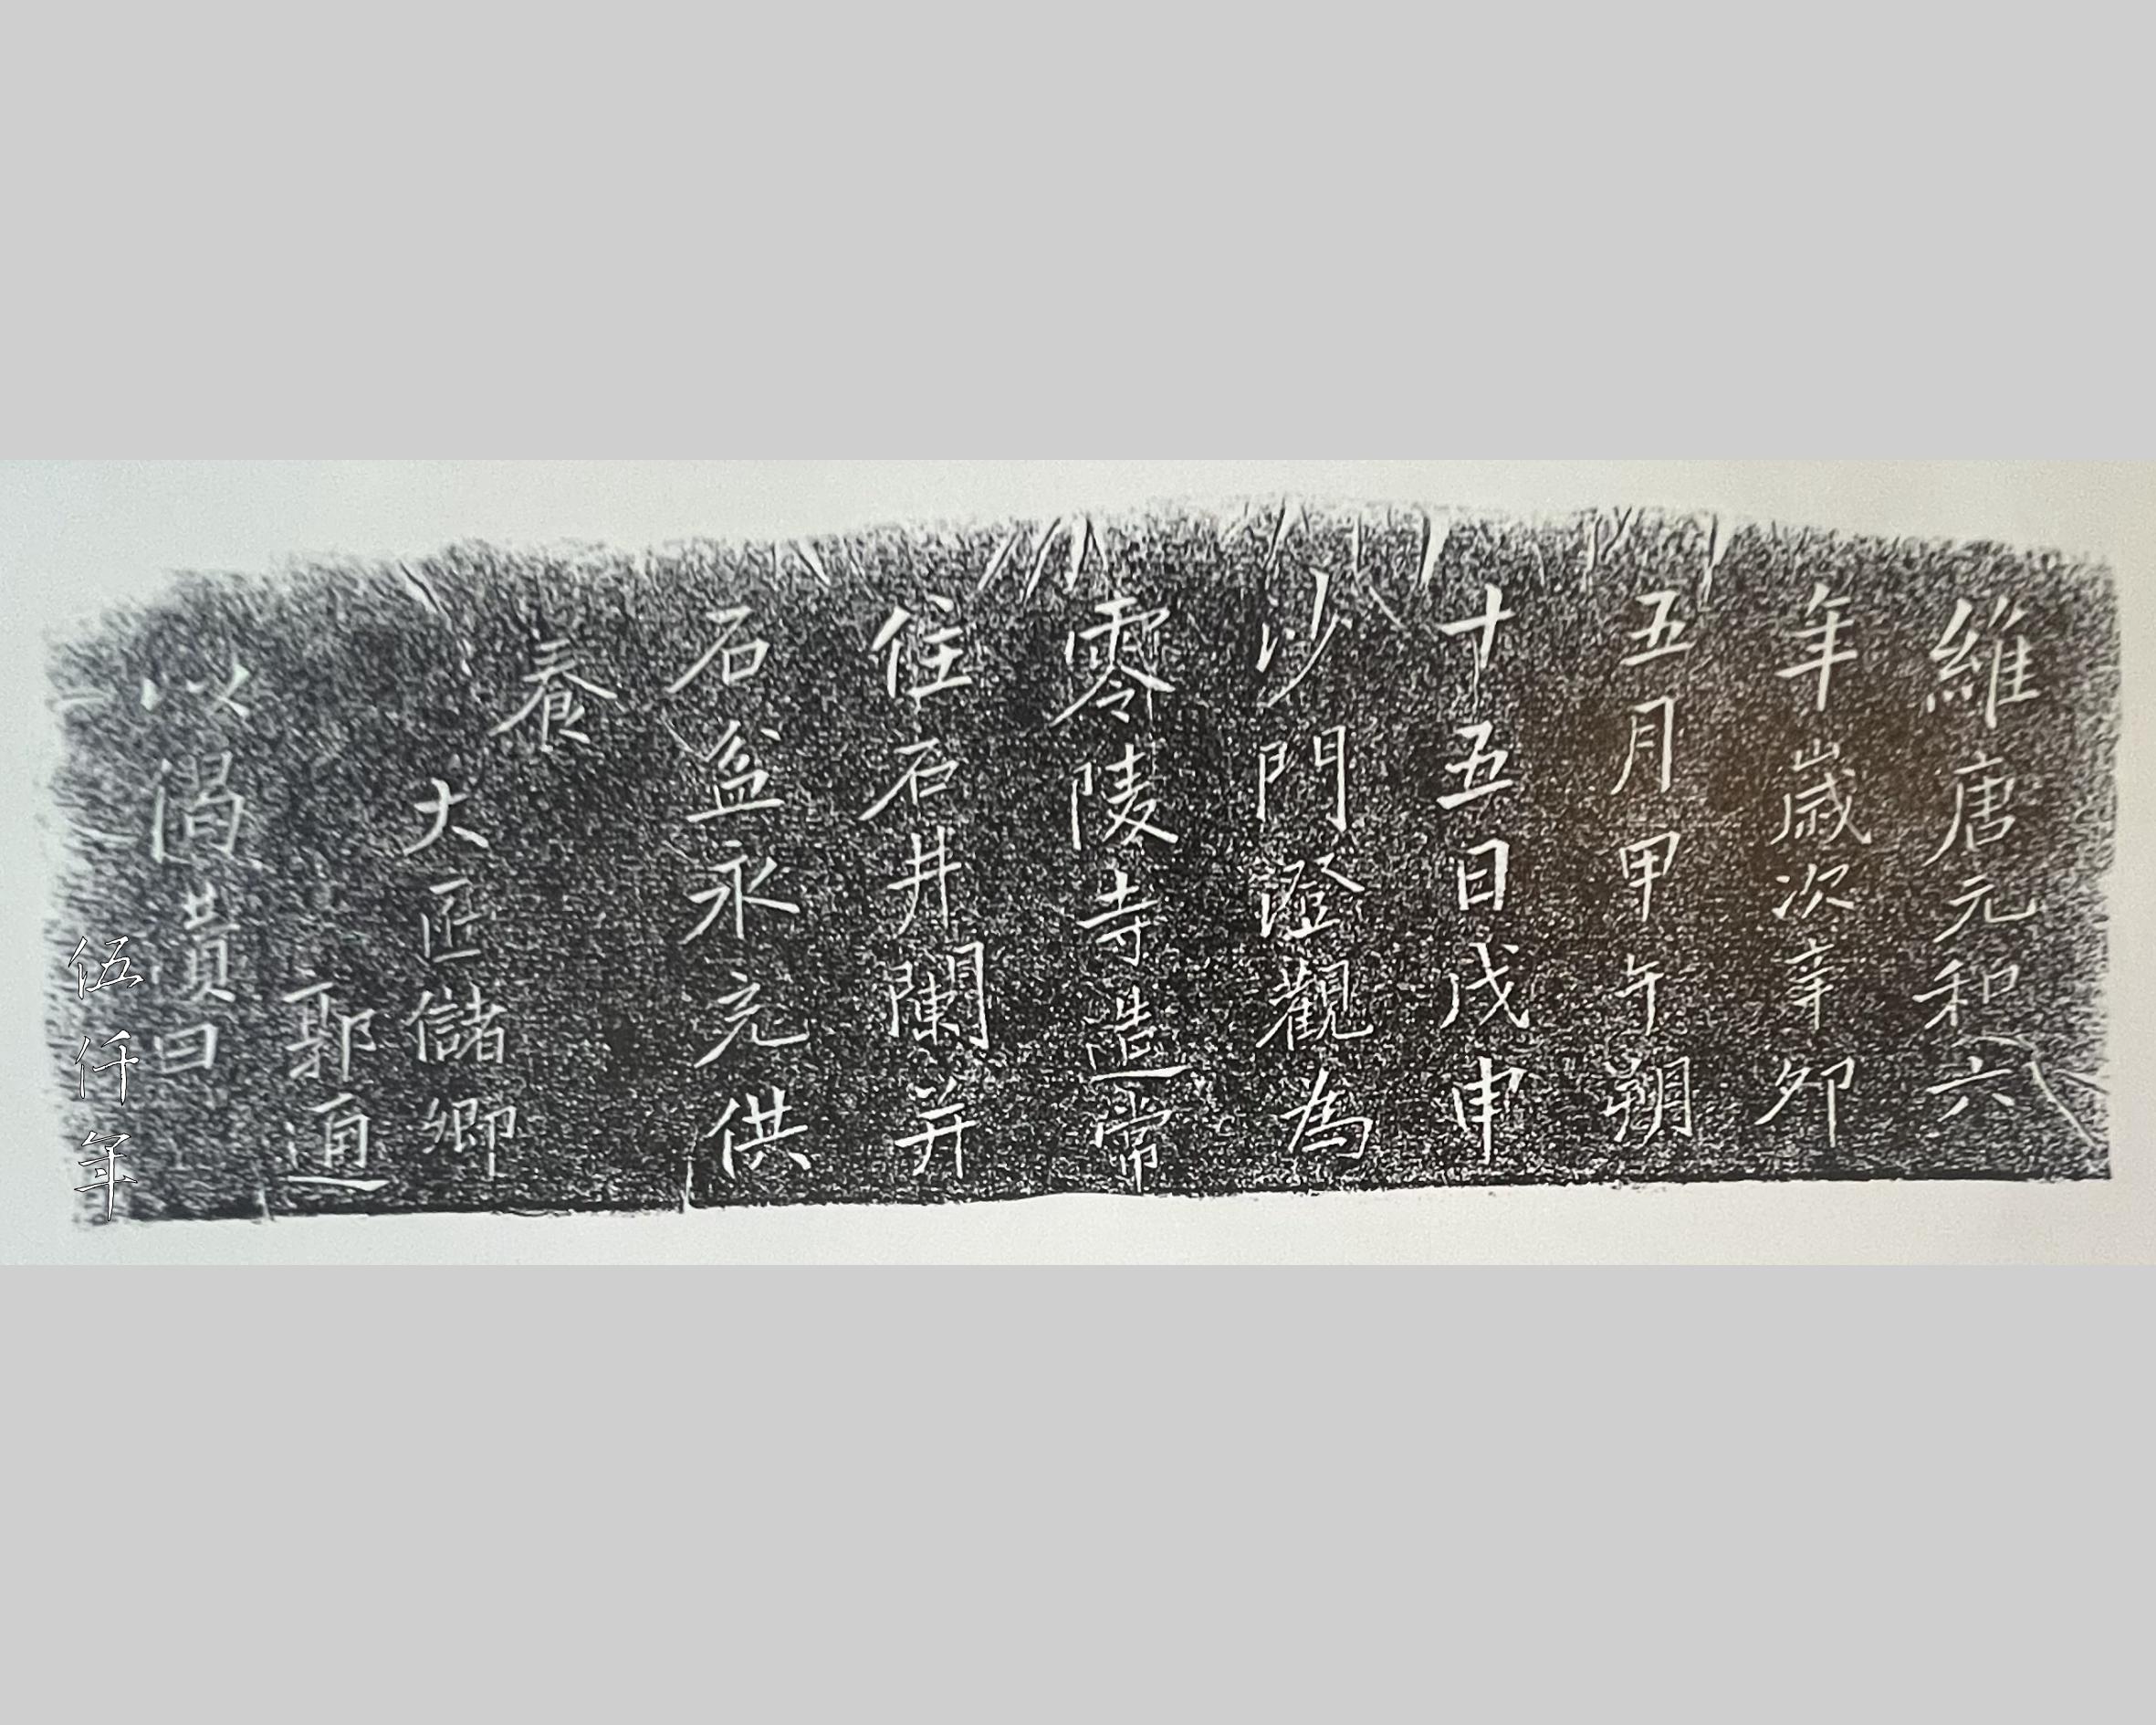 維唐元和六
年歲次辛卯
五月甲午朔
十五日戊申
沙門澄觀為
零陵寺造常
住石井闌并
石盆永充供
養
大匠儲卿
郭通
以偈贊曰
伍仟年